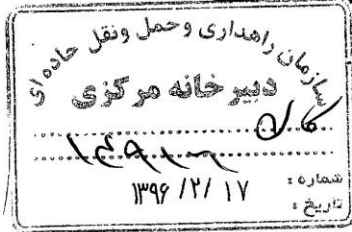 سازمان راهداری و حمل ونقل جاده ای
دبیرخانه مرکزی
شماره :
۱۳۹۶ /۲/ ۱۷
تاریخ :